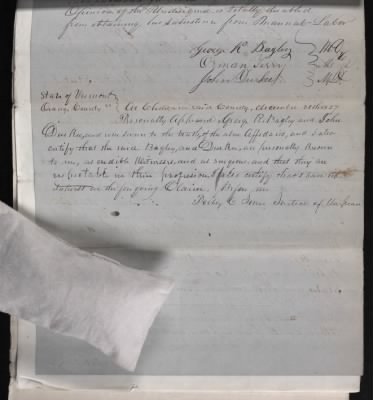 Opinion of the Undersigned is totally disabled
from obtaining his subsistence from Manual Labor
George R. Bagley
Orman Terry
John Durkee
M.D.
State of Vermont
Orange County
At Chelsea in said County, December
Personally Appeared George R. Bagley and John
Durkee, and were sworn to the truth of the above Affidavit, and I also
certify that the said Bagley, and Durkee, are personally known
to me, as credible Witnesses, and as surgeons, and that they are
respectable in their profession, I also certify that I have no
interest in the foregoing Claim. Before me
Justice of the Peace